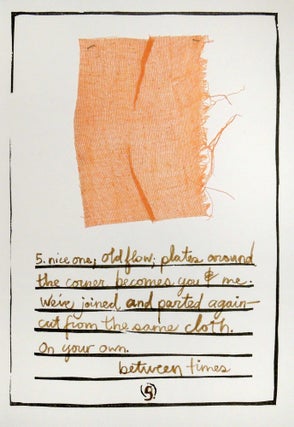 5. nice one, old flow; plates around
the corner becomes you & me.
We're joined and parted again-
cut from the same cloth.
On your own.
between times
9.